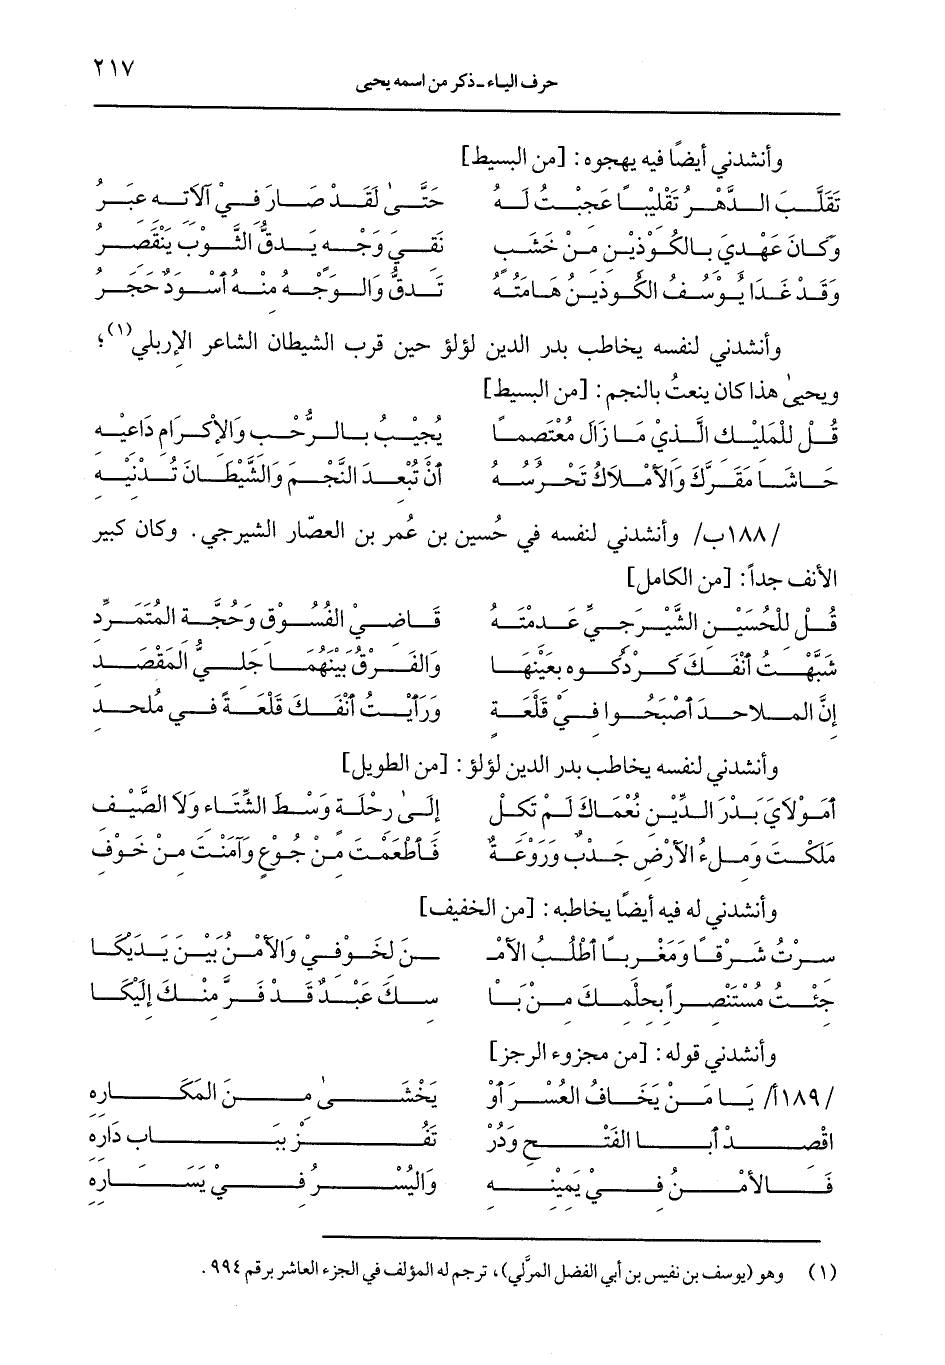 حرف الياء - ذكر من اسمه يحيى ٢١٧
وأنشدني أيضًا فيه يهجوه: [من البسيط]
تَقَلَّبَ الدَّهْرُ تَقْلِيبًا عَجِبْتُ لَهُ حَتَّىٰ لَقَدْ صَارَ فِيْ آلَاتِهِ عِبَرُ
وَكَانَ عَهْدِيَ بِالكُوْذِيْنِ مِنْ خَشَبٍ نَقِيَ وَجْهٍ يَدقُّ الثَّوْبَ يَنْقَصِرُ
وَقَدْ غَدَا يُوْسُفُ الكُوذِينُ هَامَتُهُ تَدقُّ وَالوَجْهُ مِنهُ أَسْوَدٌ حَجَرُ
وأنشدني لنفسه يخاطب بدر الدين لؤلؤ حين قرب الشيطان الشاعر الإربلي(١)؛
ويحيىٰ هذا كان ينعتُ بالنجم: [من البسيط]
قُلْ لِلْمَلِيْكِ الَّذِيْ مَا زَالَ مُعْتَصِمًا يُجِيْبُ بِالرُّحْبِ وَالإِكْرَامِ دَاعِيْهِ
حَاشَا مَقَرَّكَ وَالأَمْلَاكُ تَحْرُسُهُ أَنْ تُبْعِدَ النَّجْمَ وَالشَّيْطَانَ تُدْنِيْهِ
/١٨٨ب/ وأنشدني لنفسه في حُسين بن عُمر بن العصّار الشيرجي. وكان كبير
الأنف جداً: [من الكامل]
قُلْ لِلْحُسَيْنِ الشَّيْرَجِيِّ عَدِمْتُهُ قَاضِيْ الفُسُوْقِ وَحُجَّةِ المُتَمَرِّدِ
شَبَّهْتُ أَنْفَكَ كِرْدَكُوه بِعَيْنِهَا وَالفَرْقُ بَيْنَهُمَا جَلِيُّ المَقْصَدِ
إِنَّ المَلَاحِدَ أَصْبَحُوا فِيْ قَلْعَةٍ وَرَأَيْتُ أَنْفَكَ قَلْعَةً فِي مُلْحِدِ
وأنشدني لنفسه يخاطب بدر الدين لؤلؤ: [من الطويل]
أَمَوْلَايَ بَدْرَ الدِّيْنِ نُعْمَاكَ لَمْ تَكِلْ إِلَىٰ رِحْلَةٍ وَسْطَ الشِّتَاءِ وَلَا الصَّيْفِ
مَلَكْتَ وَمِلءُ الأَرْضِ جَدْبٌ وَرَوْعَةٌ فَأَطْعَمْتَ مِنْ جُوْعٍ وَآمَنْتَ مِنْ خَوْفِ
وأنشدني له فيه أيضًا يخاطبه: [من الخفيف]
سِرْتُ شَرْقًا وَمَغْرِبًا أَطْلُبُ الأَمْـ ـنَ لِخَوْفِيْ وَالأَمْنُ بَيْنَ يَدَيْكَا
جِئْتُ مُسْتَنْصِراً بِحِلْمِكَ مِنْ بَأْ سِكَ عَبْدٌ قَدْ فَرَّ مِنْكَ إِلَيْكَا
وأنشدني قوله: [من مجزوء الرجز]
/١٨٩أ/ يَا مَنْ يَخَافُ العُسْرَ أَوْ يَخْشَىٰ مِنَ المَكَارِهِ
اقْصِدْ أَبَا الفَتْحِ وَدُرْ تَفُزْ بِبَابِ دَارِهِ
فَالأَمْنُ فِيْ يَمِيْنِهِ وَاليُسْرُ فِيْ يَسَارِهِ
(١) وهو (يوسف بن نفيس بن أبي الفضل المزّلي)، ترجم له المؤلف في الجزء العاشر برقم ٩٩٤.